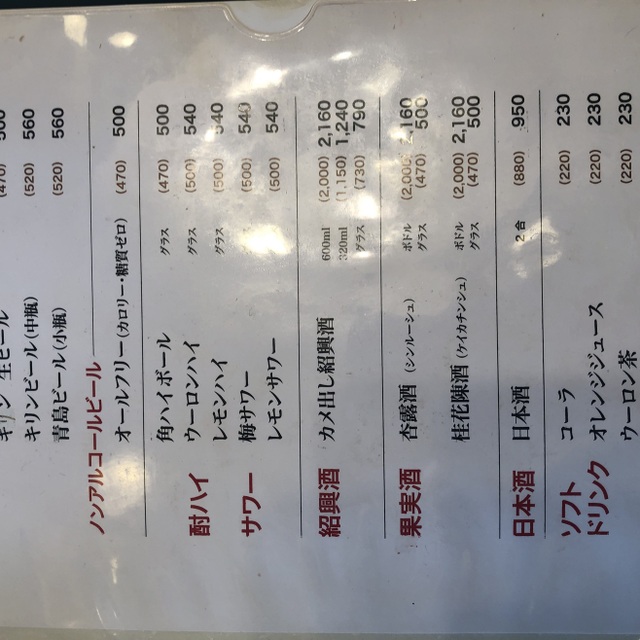 キリン 生ビール (470) 500
キリンビール(中瓶) (520) 560
青島ビール(小瓶) (520) 560
ノンアルコールビール
オールフリー(カロリー・糖質ゼロ) (470) 500
酎ハイ
角ハイボール グラス (470) 500
ウーロンハイ グラス (500) 540
レモンハイ グラス (500) 540
サワー
梅サワー (500) 540
レモンサワー (500) 540
紹興酒
カメ出し紹興酒 600ml (2,000) 2,160
320ml (1,150) 1,240
グラス (730) 790
果実酒
杏露酒(シンルーシュ) ボトル (2,000) 2,160
グラス (470) 500
桂花陳酒(ケイカチンシュ) ボトル (2,000) 2,160
グラス (470) 500
日本酒
日本酒 2合 (880) 950
ソフト
ドリンク
コーラ (220) 230
オレンジジュース (220) 230
ウーロン茶 (220) 230